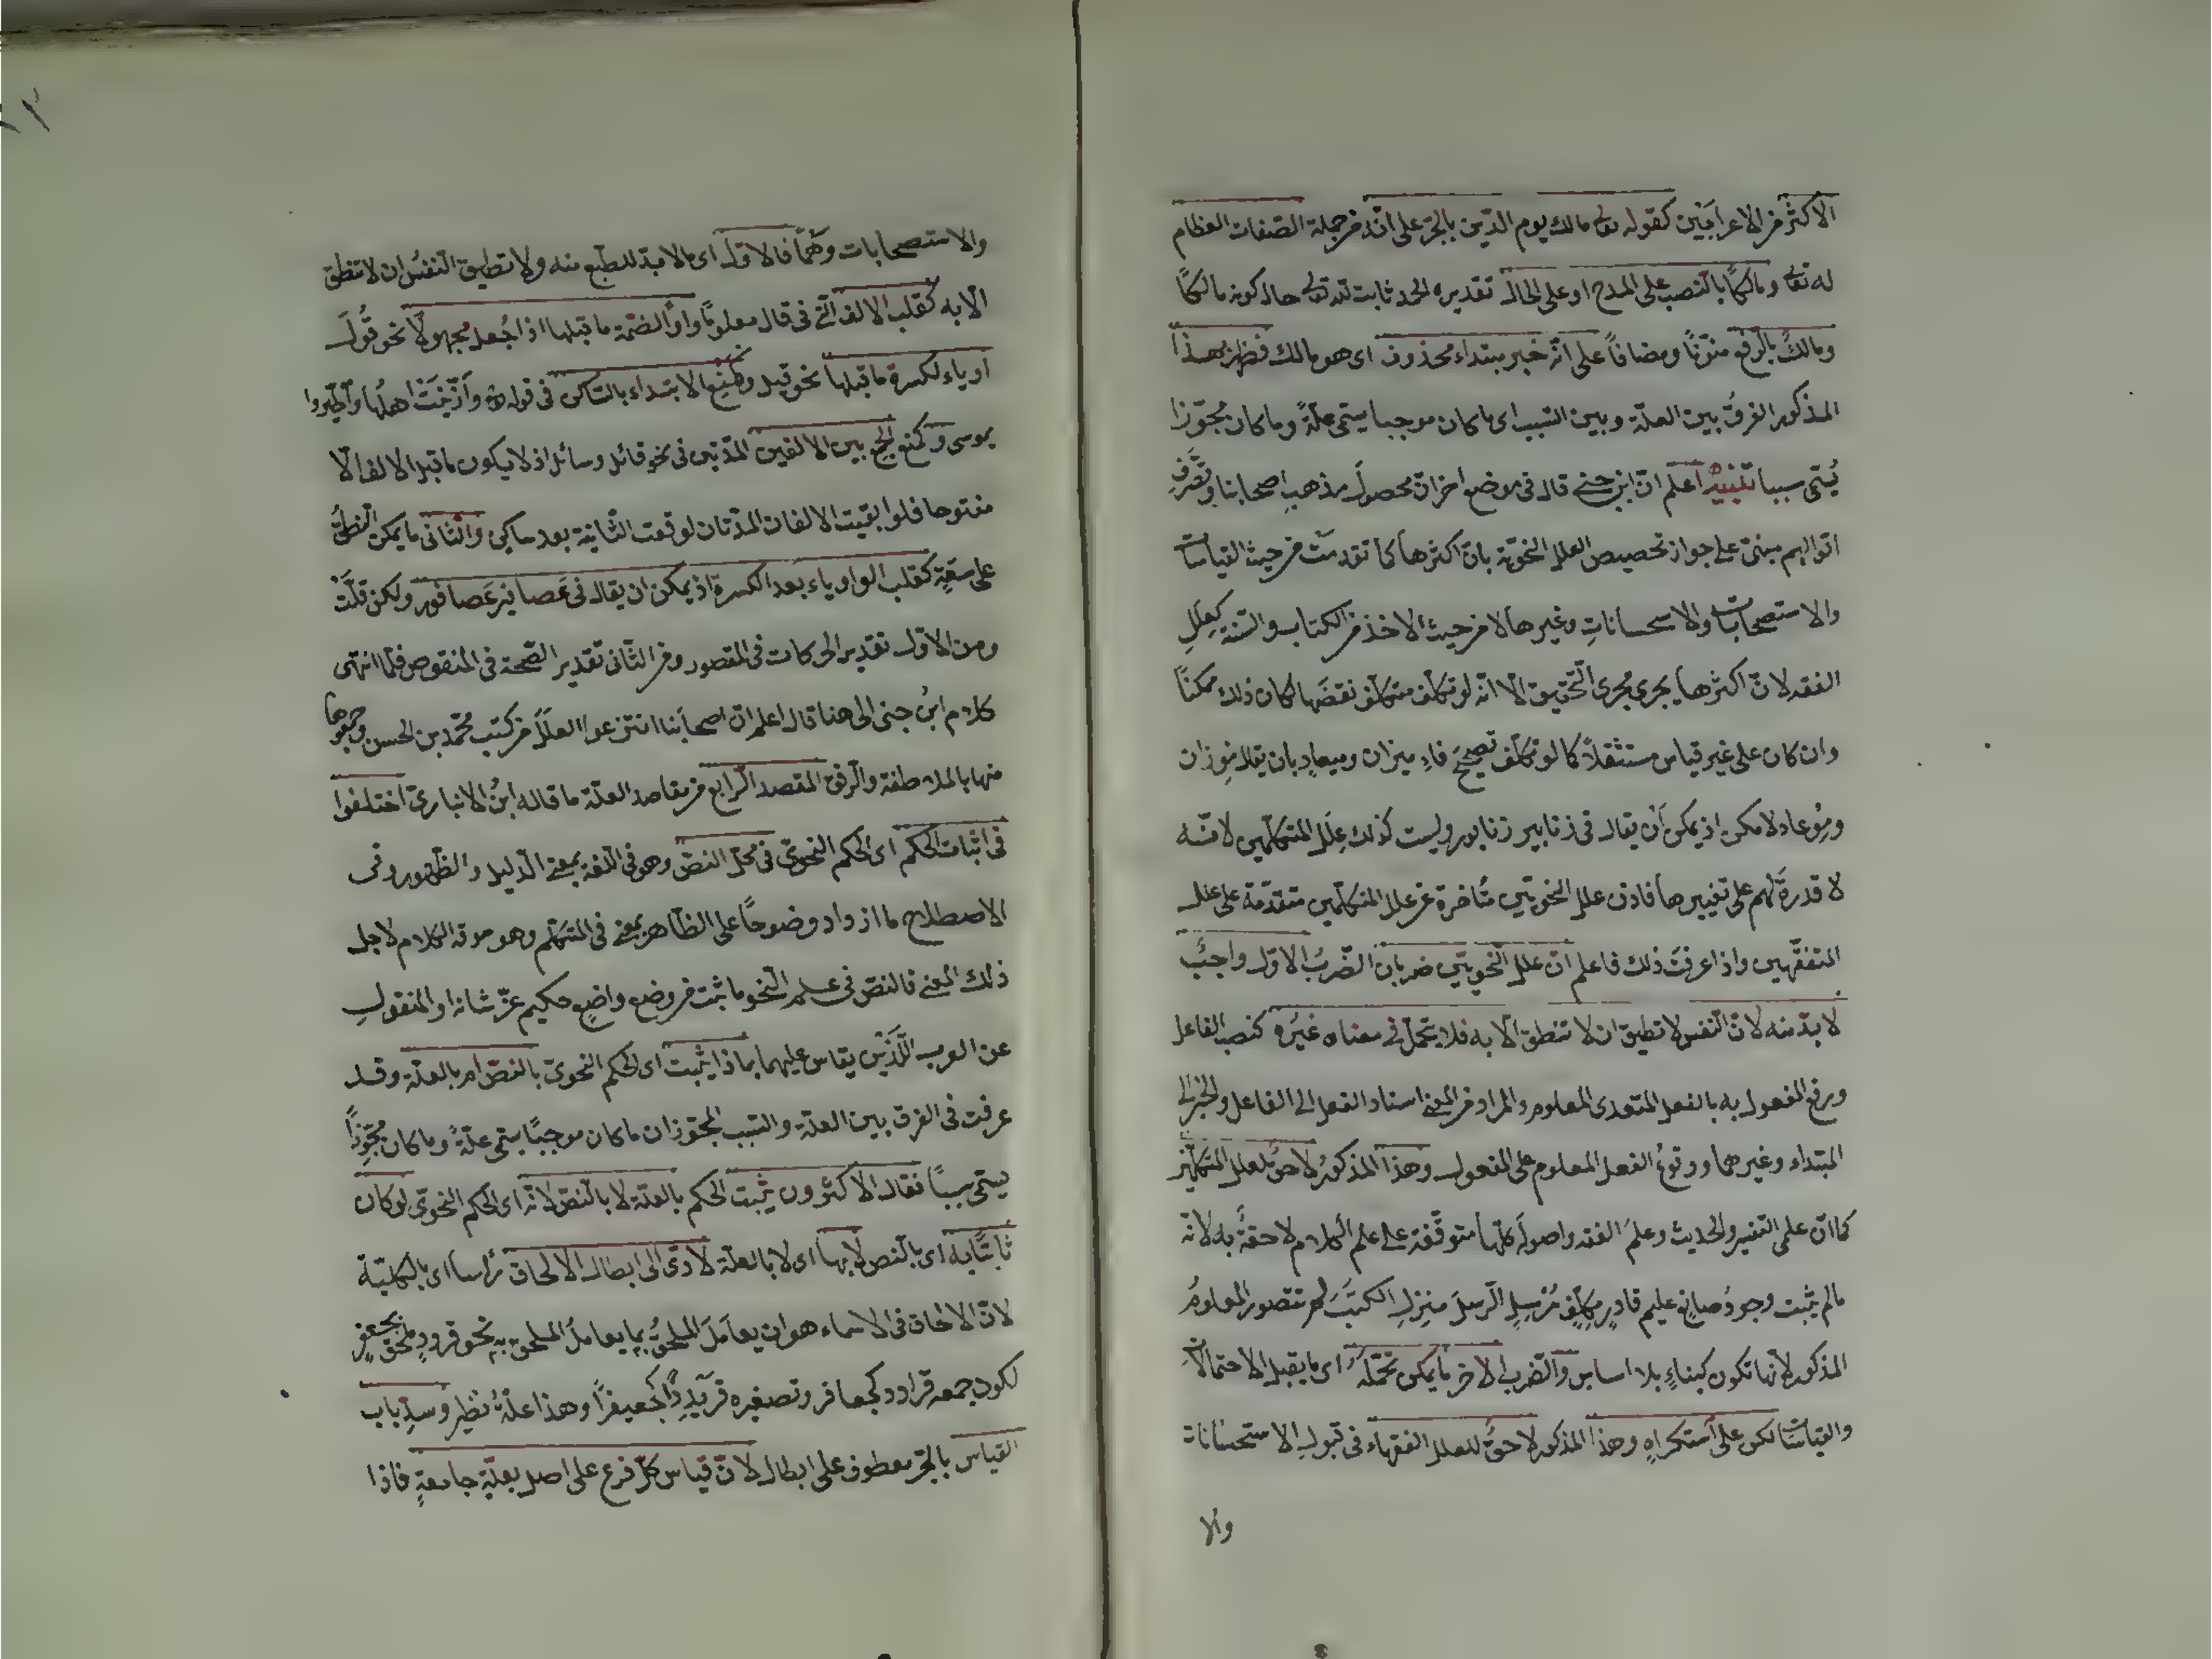 الاكثر من الاعرابَيْن كقوله تعالى مالك يوم الدّين بالجرّ على انّه من جملة الصّفات العظام
له تعالى ومالكًا بالنصب على المدح او على الحال تقديره الحمد ثابت لله تعالى حال كونه مالكًا
ومالكٌ بالرفع منوّنًا ومضافاً على انّه خبر مبتداء محذوف اى هو مالك فظهر بهذا
المذكور الفرقُ بين العلّة وبين السّبب اى ما كان موجبا يسمّى علّةً وما كان مجوّزا
يُسمّى سببا تنبيهٌ اعلم انّ ابن جنى قال فى موضع اخر انّ محصولَ مذهبِ اصحابنا وتَصَرُّفِ
اقوالهم مبنىّ على جواز تخصيص العلل النحويّة بانّ اكثرها كما تقدمَتْ من حيث القياسات
والاستصحابات والاستحساناتِ وغيرها لا من حيث الاخذ من الكتاب والسّنة كعِلَلِ
الفقه لانّ اكثرها يجرى مجرى التّحقيق الّا انّه لو تكلّف متكلّف نقضَها لكان ذلك ممكنًا
وان كان على غير قياس مستثقلاً كما لو تكلّف تصحيحَ فاءِ ميزان وميعادٍ بان يقال مِوزان
ومِوْعاد لامكن اذ يمكن اَنْ يقال فى زنابير زنابور وليست كذلك عِلَل المتكلّمين لانّه
لا قدرةَ لهم على تغييرها فاذن علل النحويّين متأخرة عن علل المتكلّمين متقدّمة على علل
المتفقّهين واذا عرفتَ ذلك فاعلم انّ علل النّحويّين ضربان الضّربُ الاوّل واجبٌ
لا بدّ منه لانّ النّفس لا تطيق ان لا تنطق الّا به فلا يحمّل فى معناه غيرُه كنصب الفاعل
ورفع المفعول به بالفعل المتعدى المعلوم والمراد من المعنى اسناد الفعل الى الفاعل والخبر الى
المبتداء وغيرهما ووقوعُ الفعل المعلوم على المفعول وهذا المذكورُ لاحقٌ لعلل المتكلّمين
كما انّ علمى التّفسير والحديث وعلمَ الفقه واصولَه كلّها متوقّفة على علم الكلام لاحقةٌ به لانّه
ما لم يثبت وجودُ صانعٍ عليم قادرٍ مكلِّفٍ مُرْسِلٍ الرّسلَ منزلِ الكتبَ لم تتصور العلومُ
المذكورة لانّها تكون كبناءٍ بلا اساس والضّرب الاخر ما يمكن تحمّلُه اى ما يقبل الاحتمالاتِ
والقياسات لكن على استكراهٍ وهذا المذكور لاحقٌ للعلل الفقهاء فى قبولِ الاستحسانات
والا
والاستصحابات وَهُمَا فالاوّل اى ما لا بدّ للطّبع منه ولا تطيق النّفسُ ان لا تنطق
الّا به كقلب الالف الّتى فى قال معلومًا واوًا لضمّة ما قبلها اذا جُعل مجهولًا نحو قُوِلَ
او ياء لكسرة ما قبلها نحو قيل وكمنع الابتداء بالسّاكن فى قوله تعالى وَازَّيَّنَتْ اهلُها واطّيّروا
بموسى وكمنع الجمع بين الالفين المدّتين فى نحو قائل وسائل اذ لا يكون ما قبل الالف الّا
مفتوحا فلو ابقيت الالفان المدّتان لوقعت الثّانية بعد ساكن والثّانى ما يمكن النّطقُ
على مشقّةٍ كقلب الواو ياء بعد الكسرة اذ يمكن ان يقال فى عَصافير عَصافِور ولكن قلّتْ
ومن الاوّل تقدير الحركات فى المقصور ومن الثّانى تقدير الضمّة فى المنقوص فلمّا انتهى
كلام ابنُ جنى الى هنا قال اعلم انّ اصحابنا انتزعوا العلَلَ من كتب محمّد بن الحسن وجمعوها
منها بالملاطفة والرّفق المقصد الرّابع من مقاصد العلّة ما قاله ابنُ الانبارىّ اختلفوا
فى اثبات الحكم اى الحكم النحوىّ فى محلّ النصّ وهو فى اللّغة بمعنى الدّليل والظّهور وفى
الاصطلاح ما ازداد وضوحًا على الظّاهر بمعنى فى المتكلّم وهو سوق الكلام لاجل
ذلك المعنى فالنصّ فى علم النّحو ما ثبت من وضعِ واضعٍ حكيم عزّ شانه او المنقولِ
عن العرب اللّذَيْن يقاس عليهما بماذا يثبت اى الحكم النحوىّ بالنصّ ام بالعلّة وقد
عرفت فى الفرق بين العلّة والسّبب المجوّز ان ما كان موجبًا يسمّى علّةً وما كان مجوّزًا
يسمّى سببًا فقال الاكثرون يثبت الحكم بالعلّة لا بالنّصّ لانّه اى الحكم النحوىّ لو كان
ثابتًا به اى بالنّص لا بها اى لا بالعلّة لادّى الى ابطال الالحاق رأسا اى بالكليّة
لانّ الالحاق فى الاسماء هو ان يعاملَ الملحقُ بما يعاملُ الملحق به نحو قردد ملحق بجعفرٍ
لكون جمعه قرادد كجعافر وتصغيره قريدِدًا كجعيفرًا وهذا علّةُ نظيرٍ وسدّ باب
القياس بالجرّ معطوف على ابطال لانّ قياس كلّ فرع على اصل بعلّة جامعةٍ فاذا